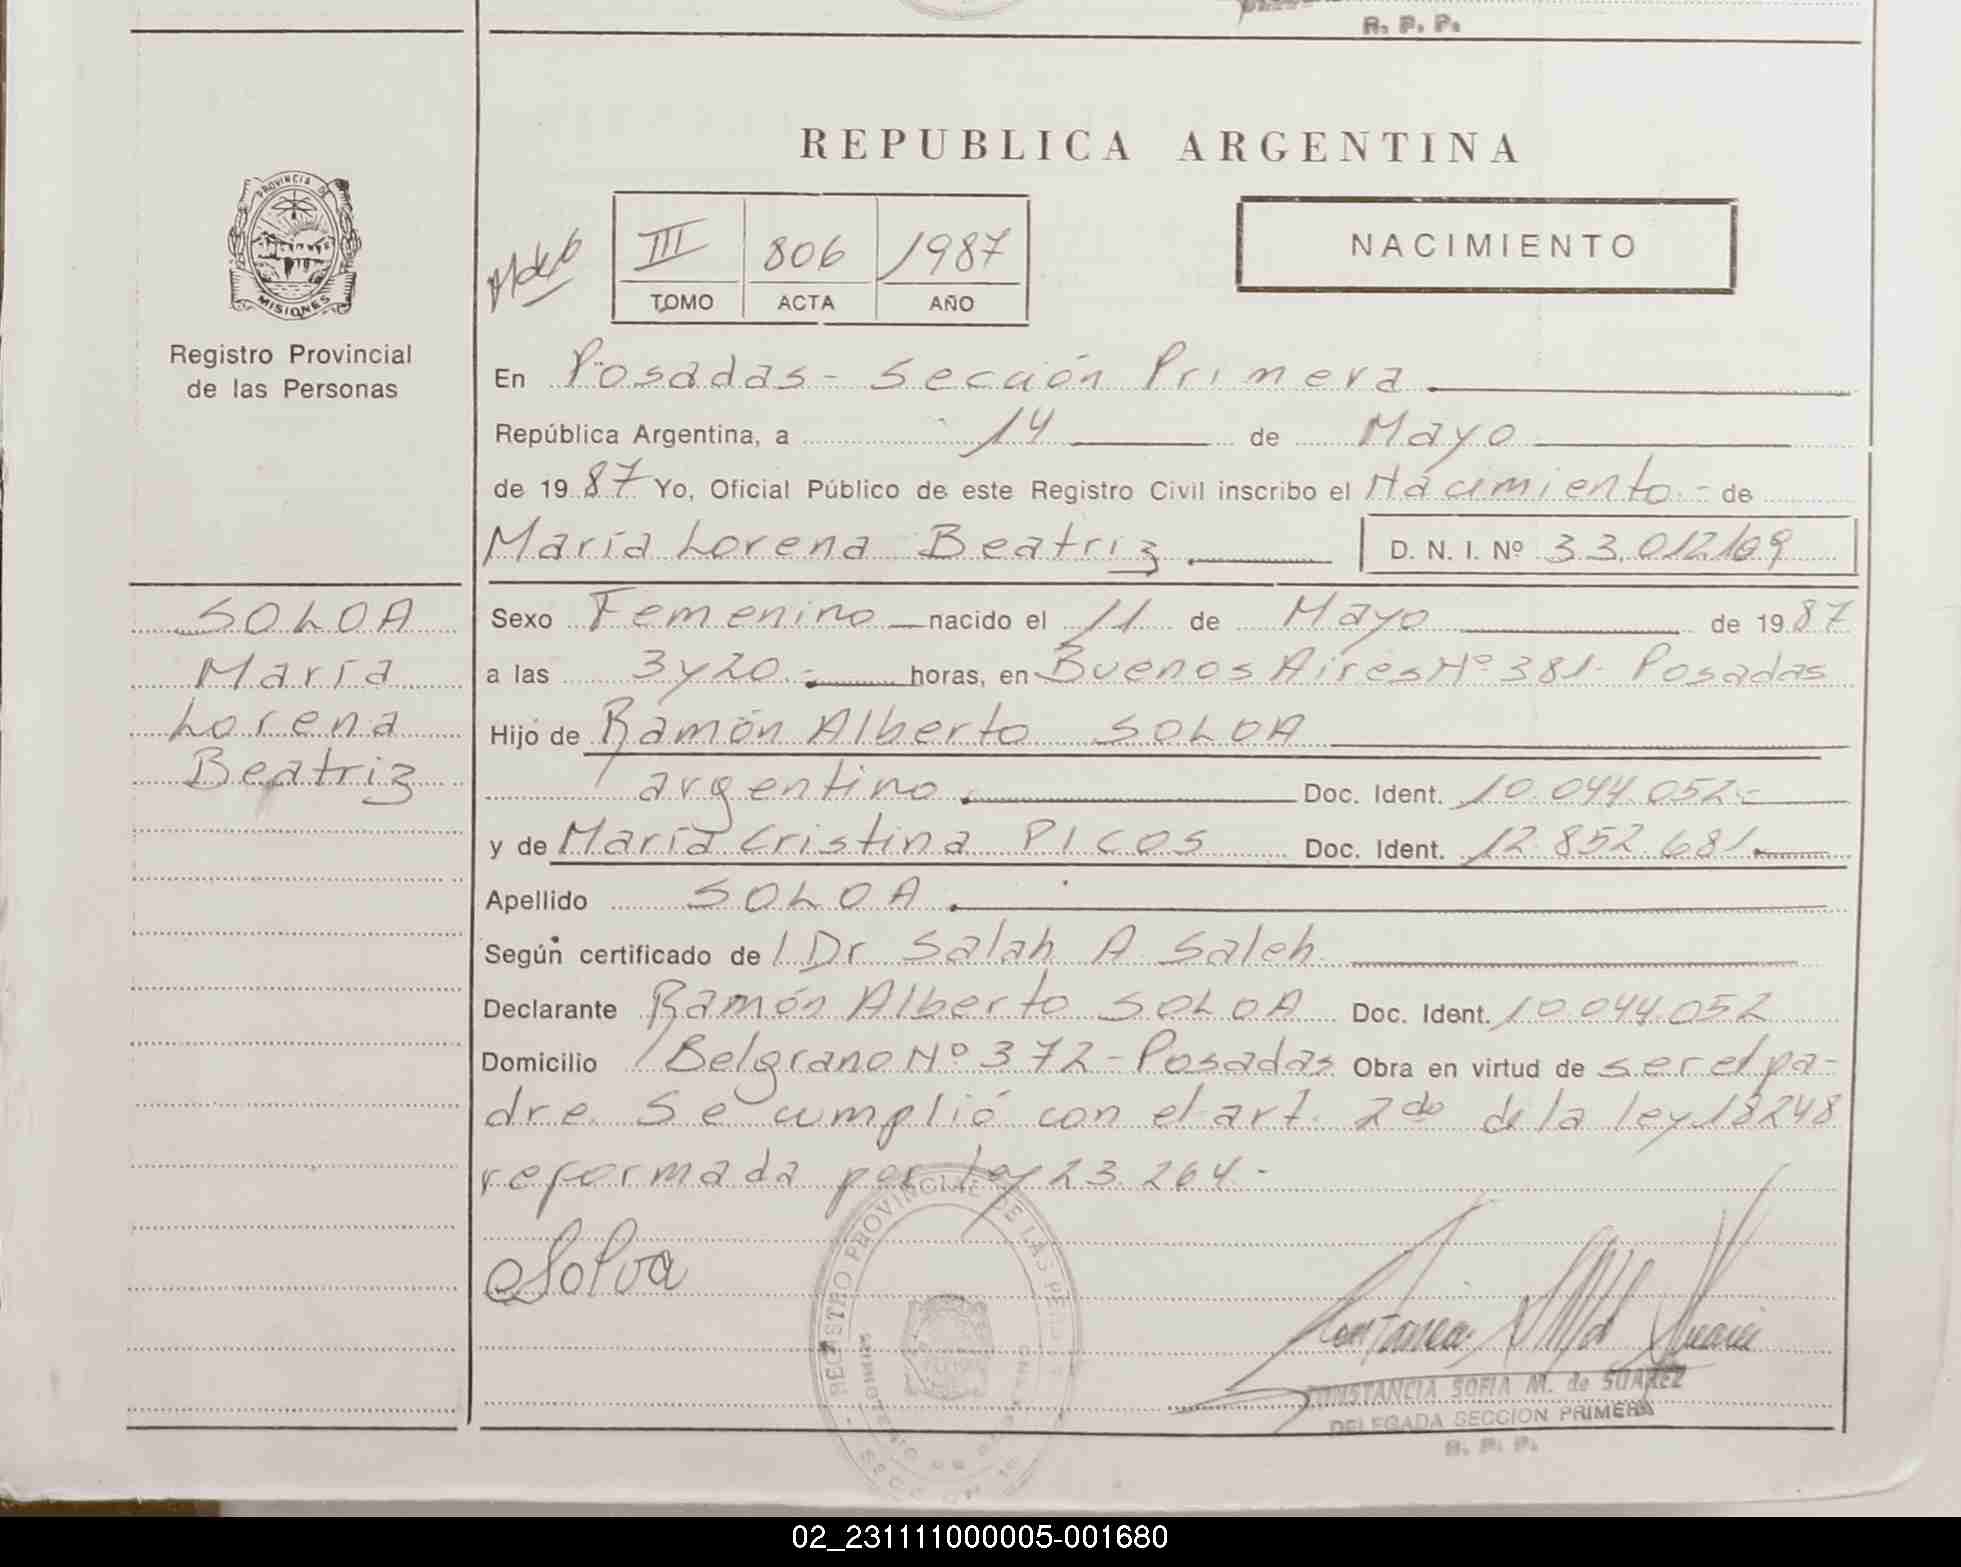 R. P. P.
REPUBLICA ARGENTINA
PROVINCIA DE
MISIONES
Registro Provincial
de las Personas
III 806 1987
TOMO ACTA AÑO
NACIMIENTO
En Posadas - Sección Primera
República Argentina, a 14 de Mayo
de 1987 Yo, Oficial Público de este Registro Civil inscribo el Nacimiento.- de
María Lorena Beatriz. D. N. I. Nº 33.012.169
SOLOA
María
Lorena
Beatriz
Sexo Femenino nacido el 11 de Mayo de 1987
a las 3 y 20.- horas, en Buenos Aires Nº 381- Posadas
Hijo de Ramón Alberto SOLOA
argentino. Doc. Ident. 10.044.052.-
y de María Cristina PICOS Doc. Ident. 12.852.681.
Apellido SOLOA.
Según certificado de l Dr Salah A Saleh
Declarante Ramón Alberto SOLOA Doc. Ident. 10.044.052
Domicilio Belgrano Nº 372 - Posadas Obra en virtud de ser el pa-
dre. Se cumplió con el art. 2do de la ley 18248
reformada por ley 23.264.-
REGISTRO PROVINCIAL DE LAS PE
CONSTANCIA SOFIA M. de SUAREZ
DELEGADA SECCION PRIMERA
R. P. P.
02_231111000005-001680